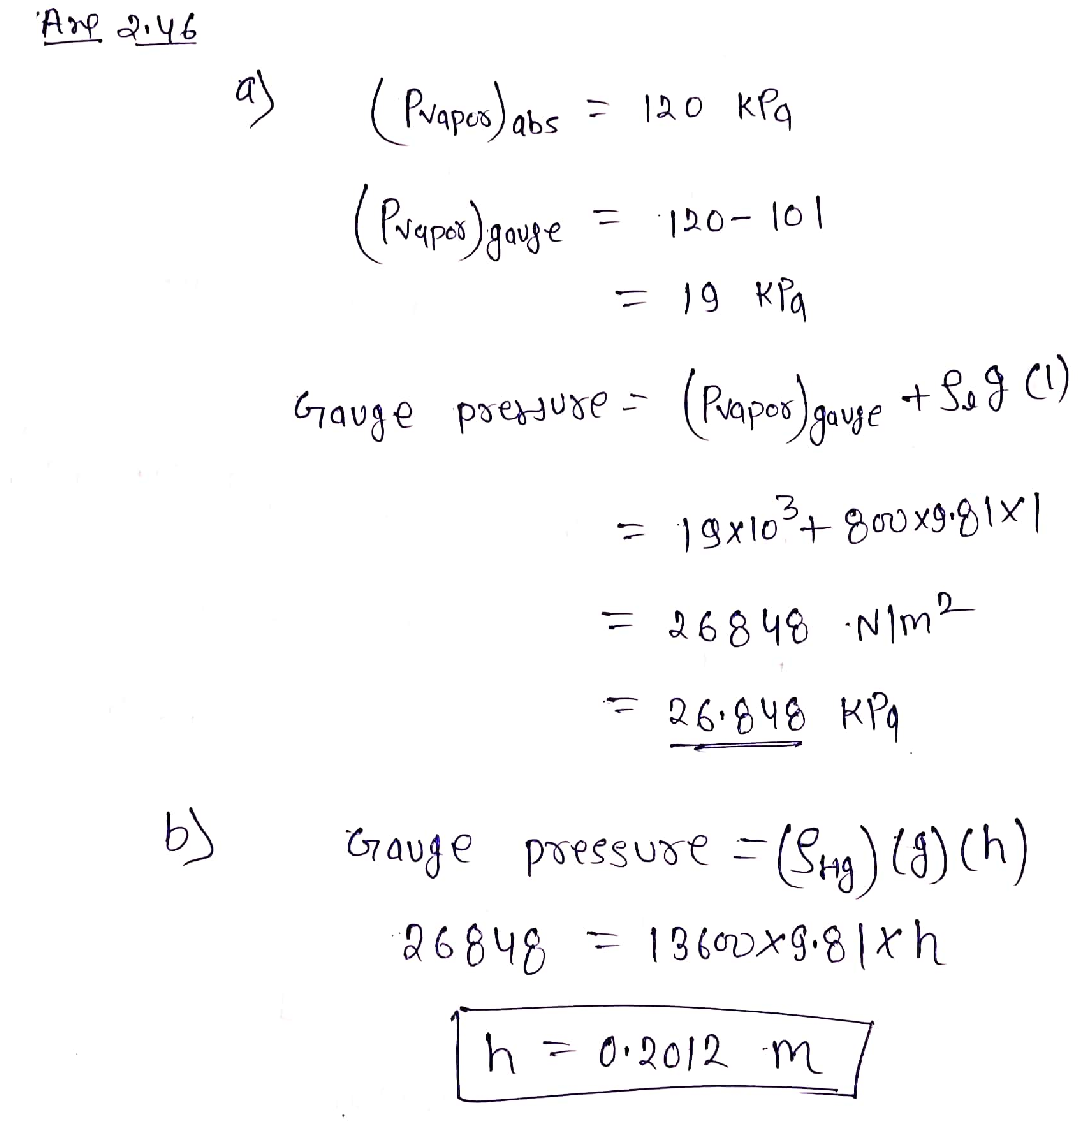 Ans 2.46
a) (Pvapor)abs = 120 KPa
(Pvapor)gauge = 120-101
= 19 KPa
Gauge pressure = (Pvapor)gauge + ρl g (1)
= 19x10³ + 800x9.81x1
= 26848 N/m²
= 26.848 KPa
b) Gauge pressure = (ρHg) (g) (h)
26848 = 13600x9.81xh
h = 0.2012 m